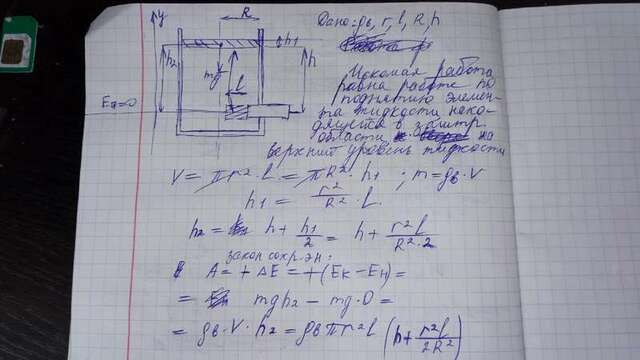 y
R
Дано: ρв, r, l, R, h
h1
h2
mg
l
h
Eп=0
Искомая работа
равна работе по
поднятию элемен-
та жидкости нахо-
дящегося в заштр.
области на
верхний уровень жидкости
V = πr²·l = πR²·h1 ; m=ρв·V
h1 = r²/R² · l
h2 = h + h1/2 = h + r²l/R²·2
закон сохр. эн.
A = + ΔE = +(Eк – Eн) =
= mgh2 – mg·0 =
= ρв·V·h2 = ρв πr²l (h + r²l/2R²)